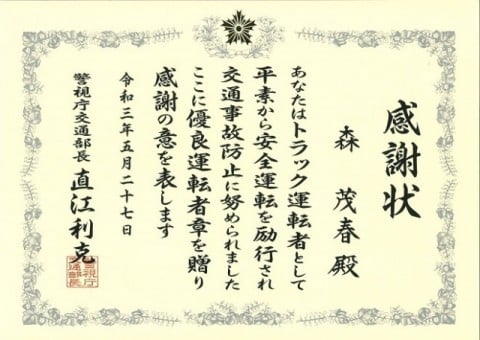 感謝状
森 茂春 殿
あなたはトラック運転者として
平素から安全運転を励行され
交通事故防止に努められました
ここに優良運転者章を贈り
感謝の意を表します
令和三年五月二十七日
警視庁交通部長 直江利克
警視庁
交通部長